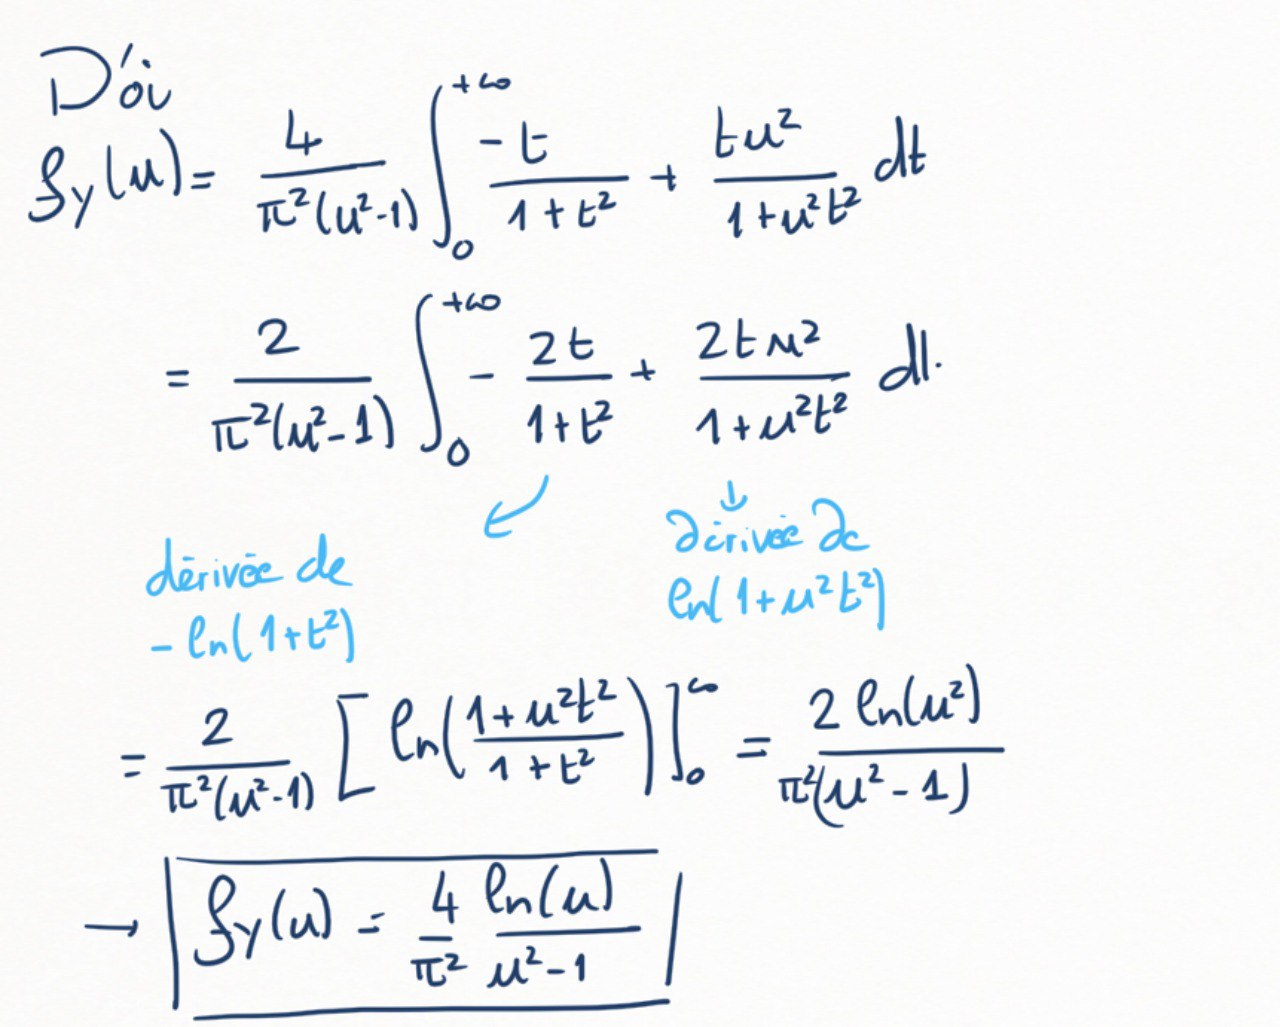 D'où
f_Y(u) = \frac{4}{π²(u²-1)} \int_0^{+∞} \frac{-t}{1+t²} + \frac{tu²}{1+u²t²} dt
= \frac{2}{π²(u²-1)} \int_0^{+∞} - \frac{2t}{1+t²} + \frac{2tu²}{1+u²t²} dt
dérivée de
- ln(1+t²)
dérivée de
ln(1+u²t²)
= \frac{2}{π²(u²-1)} [ ln(\frac{1+u²t²}{1+t²}) ]_0^∞ = \frac{2 ln(u²)}{π²(u²-1)}
→ f_Y(u) = \frac{4}{π²} \frac{ln(u)}{u²-1}